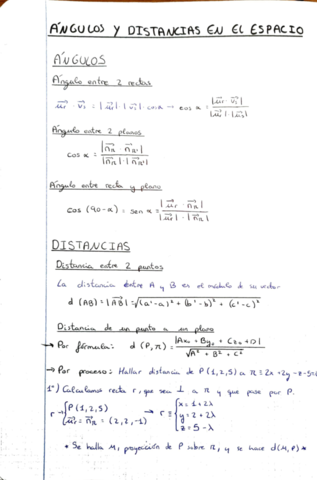 ÁNGULOS Y DISTANCIAS EN EL ESPACIO
ÁNGULOS
Ángulo entre 2 rectas
u⃗r · v⃗s = |u⃗r| · |v⃗s| · cos α → cos α = |u⃗r · v⃗s| / |u⃗r| · |v⃗s|
Ángulo entre 2 planos
cos α = |n⃗π · n⃗π'| / |n⃗π| · |n⃗π'|
Ángulo entre recta y plano
cos (90-α) = sen α = |u⃗r · n⃗π| / |u⃗r| · |n⃗π|
DISTANCIAS
Distancia entre 2 puntos
La distancia entre A y B es el módulo de su vector
d (AB) = |AB⃗| = √(a'-a)² + (b'-b)² + (c'-c)²
Distancia de un punto a un plano
→ Por fórmula: d (P, π) = |Ax₀ + By₀ + Cz₀ + D| / √A² + B² + C²
→ Por proceso: Hallar distancia de P (1,2,5) a π ≡ 2x + 2y - z - 5 =
1º) Calculamos recta r, que sea ⊥ a π y que pase por P.
r → { P (1,2,5) u⃗r = n⃗π = (2,2,-1) → r ≡ { x = 1 + 2λ y = 2 + 2λ z = 5 - λ
• Se halla M, proyección de P sobre π, y se hace d (M, P) *